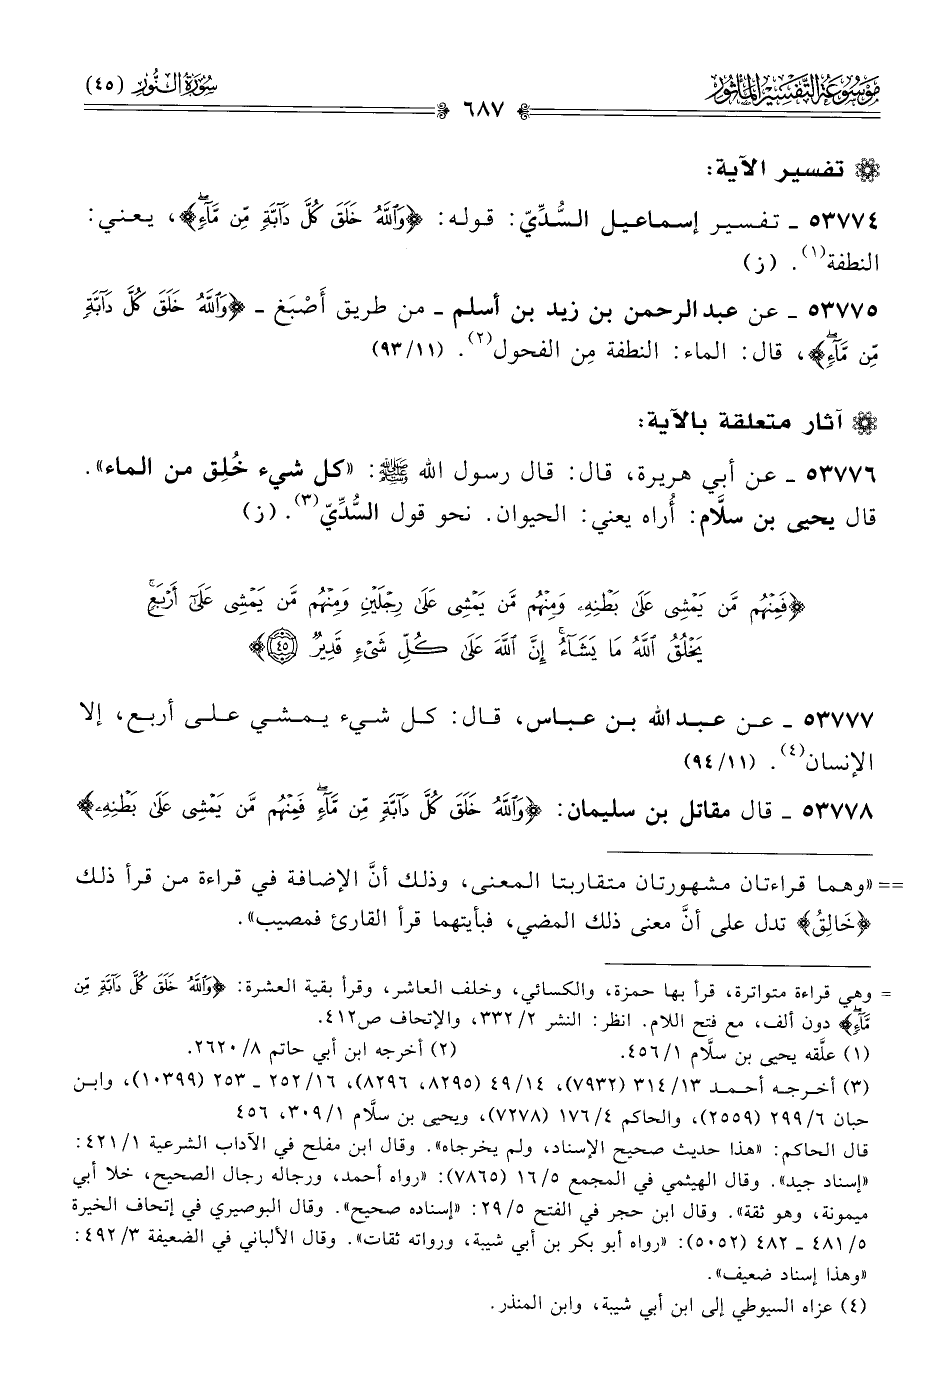 موسوعة التفسير المأثور
سورة النور (٤٥)
٦٨٧
تفسير الآية:
٥٣٧٧٤ ـ تفسير إسماعيل السُّدِّيّ: قوله: ﴿وَٱللَّهُ خَلَقَ كُلَّ دَآبَّةٖ مِّن مَّآءٖۖ﴾، يعني:
النطفة(١). (ز)
٥٣٧٧٥ ـ عن عبد الرحمن بن زيد بن أسلم ـ من طريق أَصْبَغ ـ ﴿وَٱللَّهُ خَلَقَ كُلَّ دَآبَّةٖ
مِّن مَّآءٖۖ﴾، قال: الماء: النطفة مِن الفحول(٢). (٩٣/١١)
آثار متعلقة بالآية:
٥٣٧٧٦ ـ عن أبي هريرة، قال: قال رسول الله ﷺ: «كل شيء خُلِق من الماء».
قال يحيى بن سلَّام: أُراه يعني: الحيوان. نحو قول السُّدِّيّ(٣). (ز)
﴿فَمِنْهُم مَّن يَمْشِى عَلَىٰ بَطْنِهِۦ وَمِنْهُم مَّن يَمْشِى عَلَىٰ رِجْلَيْنِ وَمِنْهُم مَّن يَمْشِى عَلَىٰٓ أَرْبَعٖۚ
يَخْلُقُ ٱللَّهُ مَا يَشَآءُۚ إِنَّ ٱللَّهَ عَلَىٰ كُلِّ شَىْءٖ قَدِيرٞ ٤٥﴾
٥٣٧٧٧ ـ عن عبد الله بن عباس، قال: كل شيء يمشي على أربع، إلا
الإنسان(٤). (٩٤/١١)
٥٣٧٧٨ ـ قال مقاتل بن سليمان: ﴿وَٱللَّهُ خَلَقَ كُلَّ دَآبَّةٖ مِّن مَّآءٖۖ فَمِنْهُم مَّن يَمْشِى عَلَىٰ بَطْنِهِۦ﴾
== «وهما قراءتان مشهورتان متقاربتا المعنى، وذلك أنَّ الإضافة في قراءة من قرأ ذلك
﴿خَالِقُ﴾ تدل على أنَّ معنى ذلك المضي، فبأيتهما قرأ القارئ فمصيب».
= وهي قراءة متواترة، قرأ بها حمزة، والكسائي، وخلف العاشر، وقرأ بقية العشرة: ﴿وَٱللَّهُ خَلَقَ كُلَّ دَآبَّةٖ مِّن
مَّآءٖۖ﴾ دون ألف، مع فتح اللام. انظر: النشر ٣٣٢/٢، والإتحاف ص٤١٢.
(١) علَّقه يحيى بن سلَّام ٤٥٦/١. (٢) أخرجه ابن أبي حاتم ٢٦٢٠/٨.
(٣) أخرجه أحمد ٣١٤/١٣ (٧٩٣٢)، ٤٩/١٤ (٨٢٩٥، ٨٢٩٦)، ٢٥٢/١٦ ـ ٢٥٣ (١٠٣٩٩)، وابن
حبان ٢٩٩/٦ (٢٥٥٩)، والحاكم ١٧٦/٤ (٧٢٧٨)، ويحيى بن سلَّام ٣٠٩/١، ٤٥٦
قال الحاكم: «هذا حديث صحيح الإسناد، ولم يخرجاه». وقال ابن مفلح في الآداب الشرعية ٤٢١/١:
«إسناد جيد». وقال الهيثمي في المجمع ١٦/٥ (٧٨٦٥): «رواه أحمد، ورجاله رجال الصحيح، خلا أبي
ميمونة، وهو ثقة». وقال ابن حجر في الفتح ٢٩/٥: «إسناده صحيح». وقال البوصيري في إتحاف الخيرة
٤٨١/٥ ـ ٤٨٢ (٥٠٥٢): «رواه أبو بكر بن أبي شيبة، ورواته ثقات». وقال الألباني في الضعيفة ٤٩٢/٣:
«وهذا إسناد ضعيف».
(٤) عزاه السيوطي إلى ابن أبي شيبة، وابن المنذر.